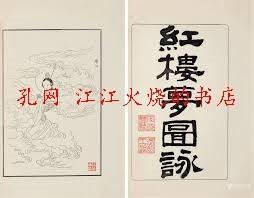 紅樓夢圖詠
孔网 江江火烧的书店